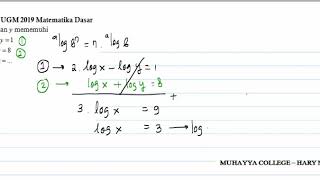 UGM 2019 Matematika Dasar
an y mememuhi
y = 1 ①
y = 8 ②
= ...
ᵃlog bⁿ = n. ᵃlog b
① → 2. log x - log y = 1
② → log x + log y = 8
+
3. log x = 9
log x = 3 → log
MUHAYYA COLLEGE – HARY N